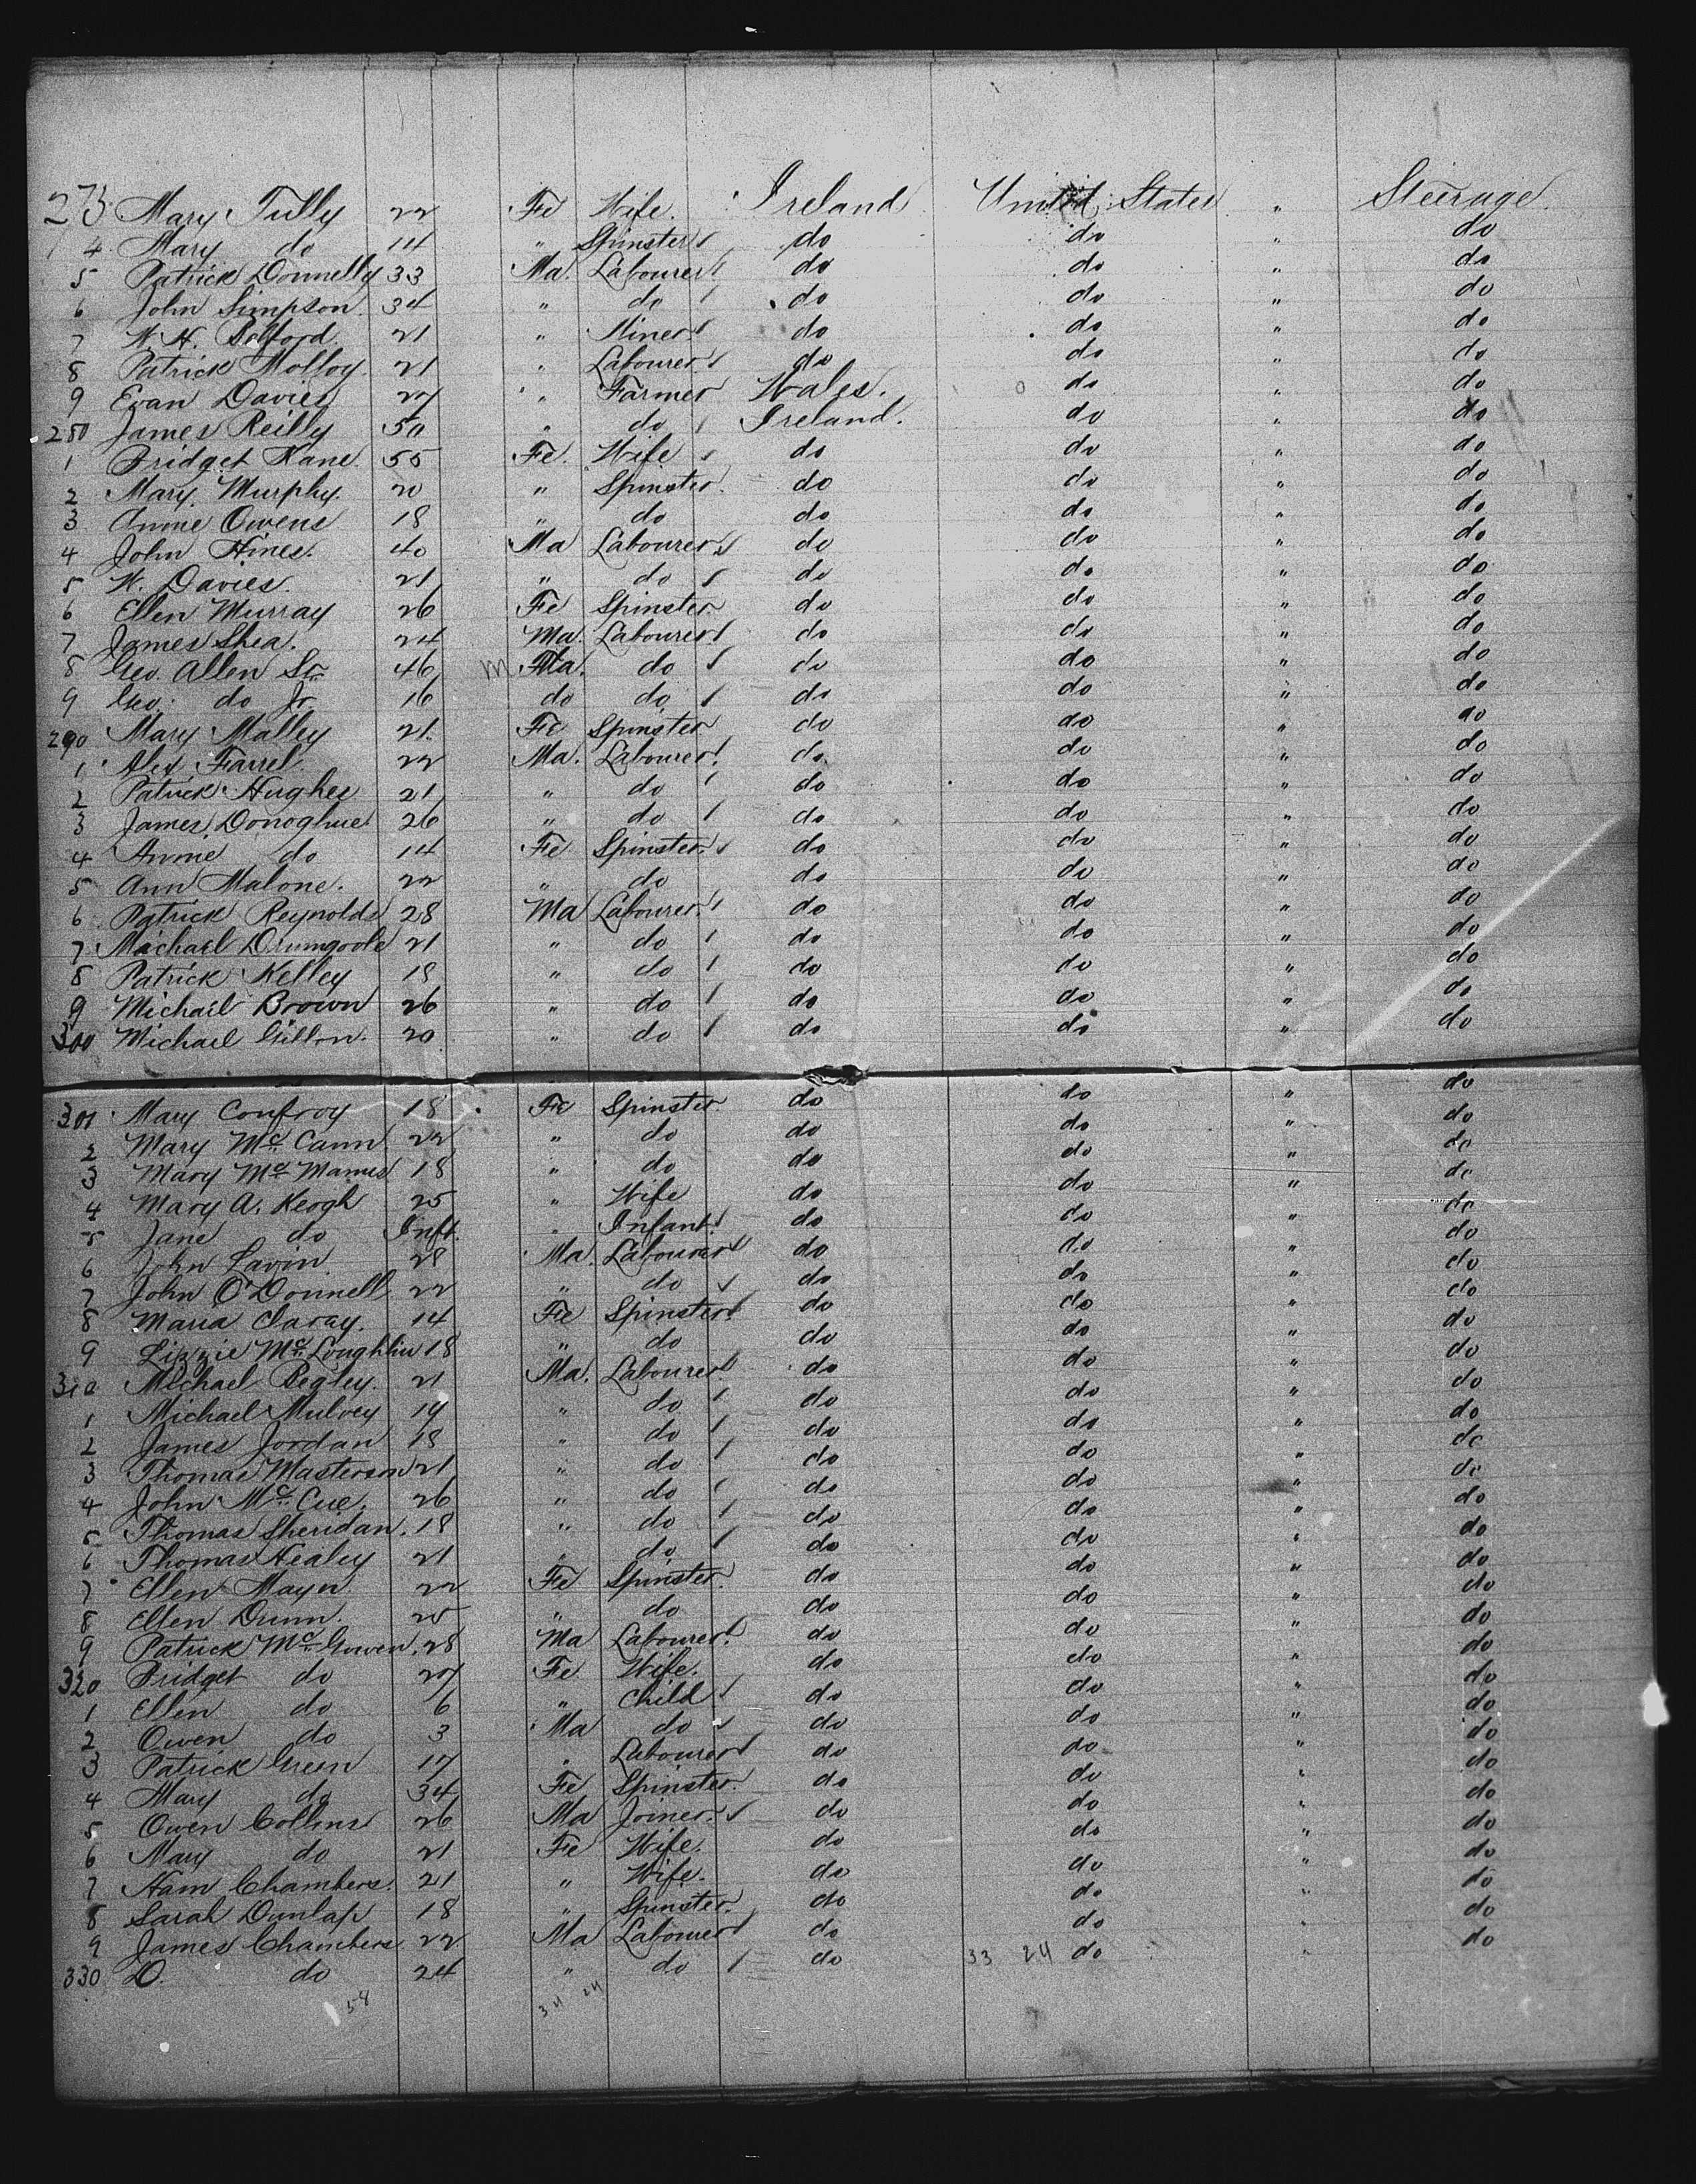 273 Mary Tully 22 Fe Wife. Ireland United States " Steerage.
4 Mary do 14 " Spinster do do " do
5 Patrick Donnelly 33 Ma. Labourer do do " do
6 John Simpson. 34 " do do do " do
7 W. H. Belford. 21 " Miner do do " do
8 Patrick Molloy. 21 " Labourer do do " do
9 Evan Davies 27 " Farmer Wales. do " do
280 James Reilly 50 " do Ireland. do " do
1 Bridget Kane. 55 Fe. Wife do do " do
2 Mary Murphy. 20 " Spinster. do do " do
3 Annie Owens 18 " do do do " do
4 John Hines. 40 Ma Labourer. do do " do
5 W. Davies. 21 " do do do " do
6 Ellen Murray 26 Fe Spinster do do " do
7 James Shea. 24 Ma. Labourer do do " do
8 Geo. Allen Sr 46 m Ma. do do do " do
9 Geo. do Jr 16 do do do do " do
290 Mary Malley 21. Fe Spinster do do " do
1 Alex. Farrel. 22 Ma. Labourer. do. do " do
2 Patrick Hughes 21 " do do do " do
3 James Donoghue. 26 " do do do " do
4 Annie do 14 Fe Spinster. do do " do
5 Ann Malone. 22 " do do do " do
6 Patrick Reynolds 28 Ma Labourer. do do " do
7 Michael Drumgoole 21 " do do do " do
8 Patrick Kelley 18 " do do do " do
9 Michael Brown 26 " do do do " do
300 Michael Gillon. 20 " do do do " do
301 Mary Confroy 18 Fe Spinster. do do " do
2 Mary Mc Cann 22 " do do do " do
3 Mary Mc Manus 18 " do do do " do
4 Mary A. Keogh 25 " Wife do do " do
5 Jane do Inft. " Infant. do do " do
6 John Lavin 28 Ma. Labourer do do " do
7 John O'Donnell 22 " do do do " do
8 Maria Claray. 14 Fe Spinster. do do " do
9 Lizzie Mc Loughlin 18 " do do do " do
310 Michael Begley. 21 Ma. Labourer. do do " do
1 Michael Mulvey 19 " do do do " do
2 James Jordan 18 " do do do " do
3 Thomas Masterson 21 " do do do " do
4 John Mc Cue. 26 " do do do " do
5 Thomas Sheridan. 18 " do do do " do
6 Thomas Healey 21 " do do do " do
7 Ellen Mayn 22 Fe Spinster. do do " do
8 Ellen Dunn. 25 " do do do " do
9 Patrick Mc Gowen. 28 Ma Labourer. do do " do
320 Bridget do 27 Fe Wife. do do " do
1 Ellen do 6 " Child do do " do
2 Owen do 3 Ma do do do " do
3 Patrick Green 17 " Labourer do do " do
4 Mary do 34 Fe Spinster. do do " do
5 Owen Collins 26 Ma Joiner. do do " do
6 Mary do 21 Fe Wife. do do " do
7 Ham Chambers. 21 " Wife. do do " do
8 Sarah Dunlap 18 " Spinster. do do " do
9 James Chambers. 22 Ma Labourer do do " do
330 D. do 24 " do do 33 24 do " do
58 34 24